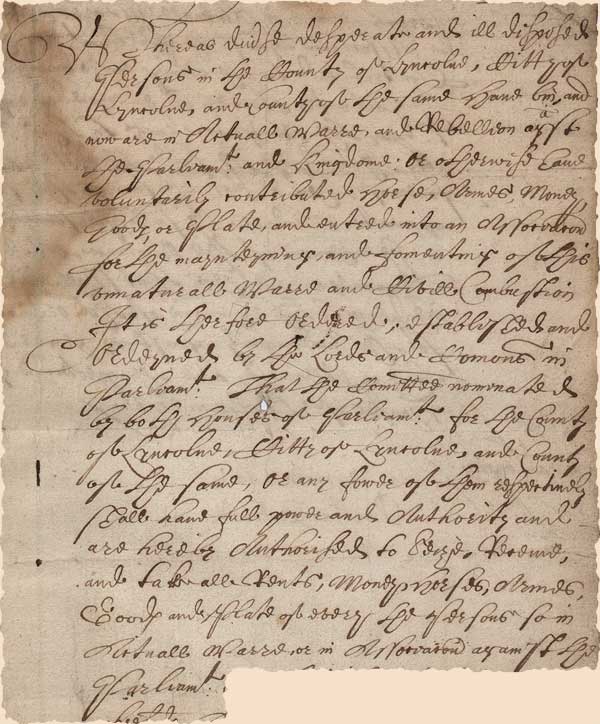 Whereas diverse desperate and ill disposed
persons in the County of Lyncolne, Citty of
Lyncolne, and County of the same have bin, and
now are in Actuall Warre, and Rebellion agast
the Parliamt. and Kingdome. Or otherwise have
voluntarily contributed Horse, Armes, Money,
Goods, or Plate, and entred into an Association
for the maynteyning, and fomenting of this
unnaturall Warre and Civill Combustion
It is therfore Ordered, established and
Ordeyned by the Lords and Comons in
Parliamt. That the Comittee nominated
by both Houses of Parliamt. for the County
of Lyncolne, Citty of Lyncolne, and County
of the same, Or any fower of them respectively
shall have full power and Authority and
are hereby Authorised to Seize, Receive,
and take all Rents, Money, Horses, Armes,
Goods and Plate of every the Persons so in
Actuall Warre, or in Association against the
Parliamt.